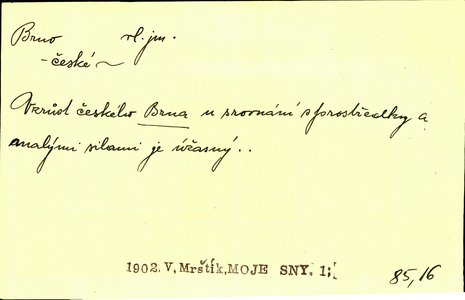 Brno vl. jm.
- české ~
Vzrůst českého Brna u srovnání s prostředky a
malými silami je úžasný..
1902. V, Mrštík, MOJE SNY. 1;
85, 16